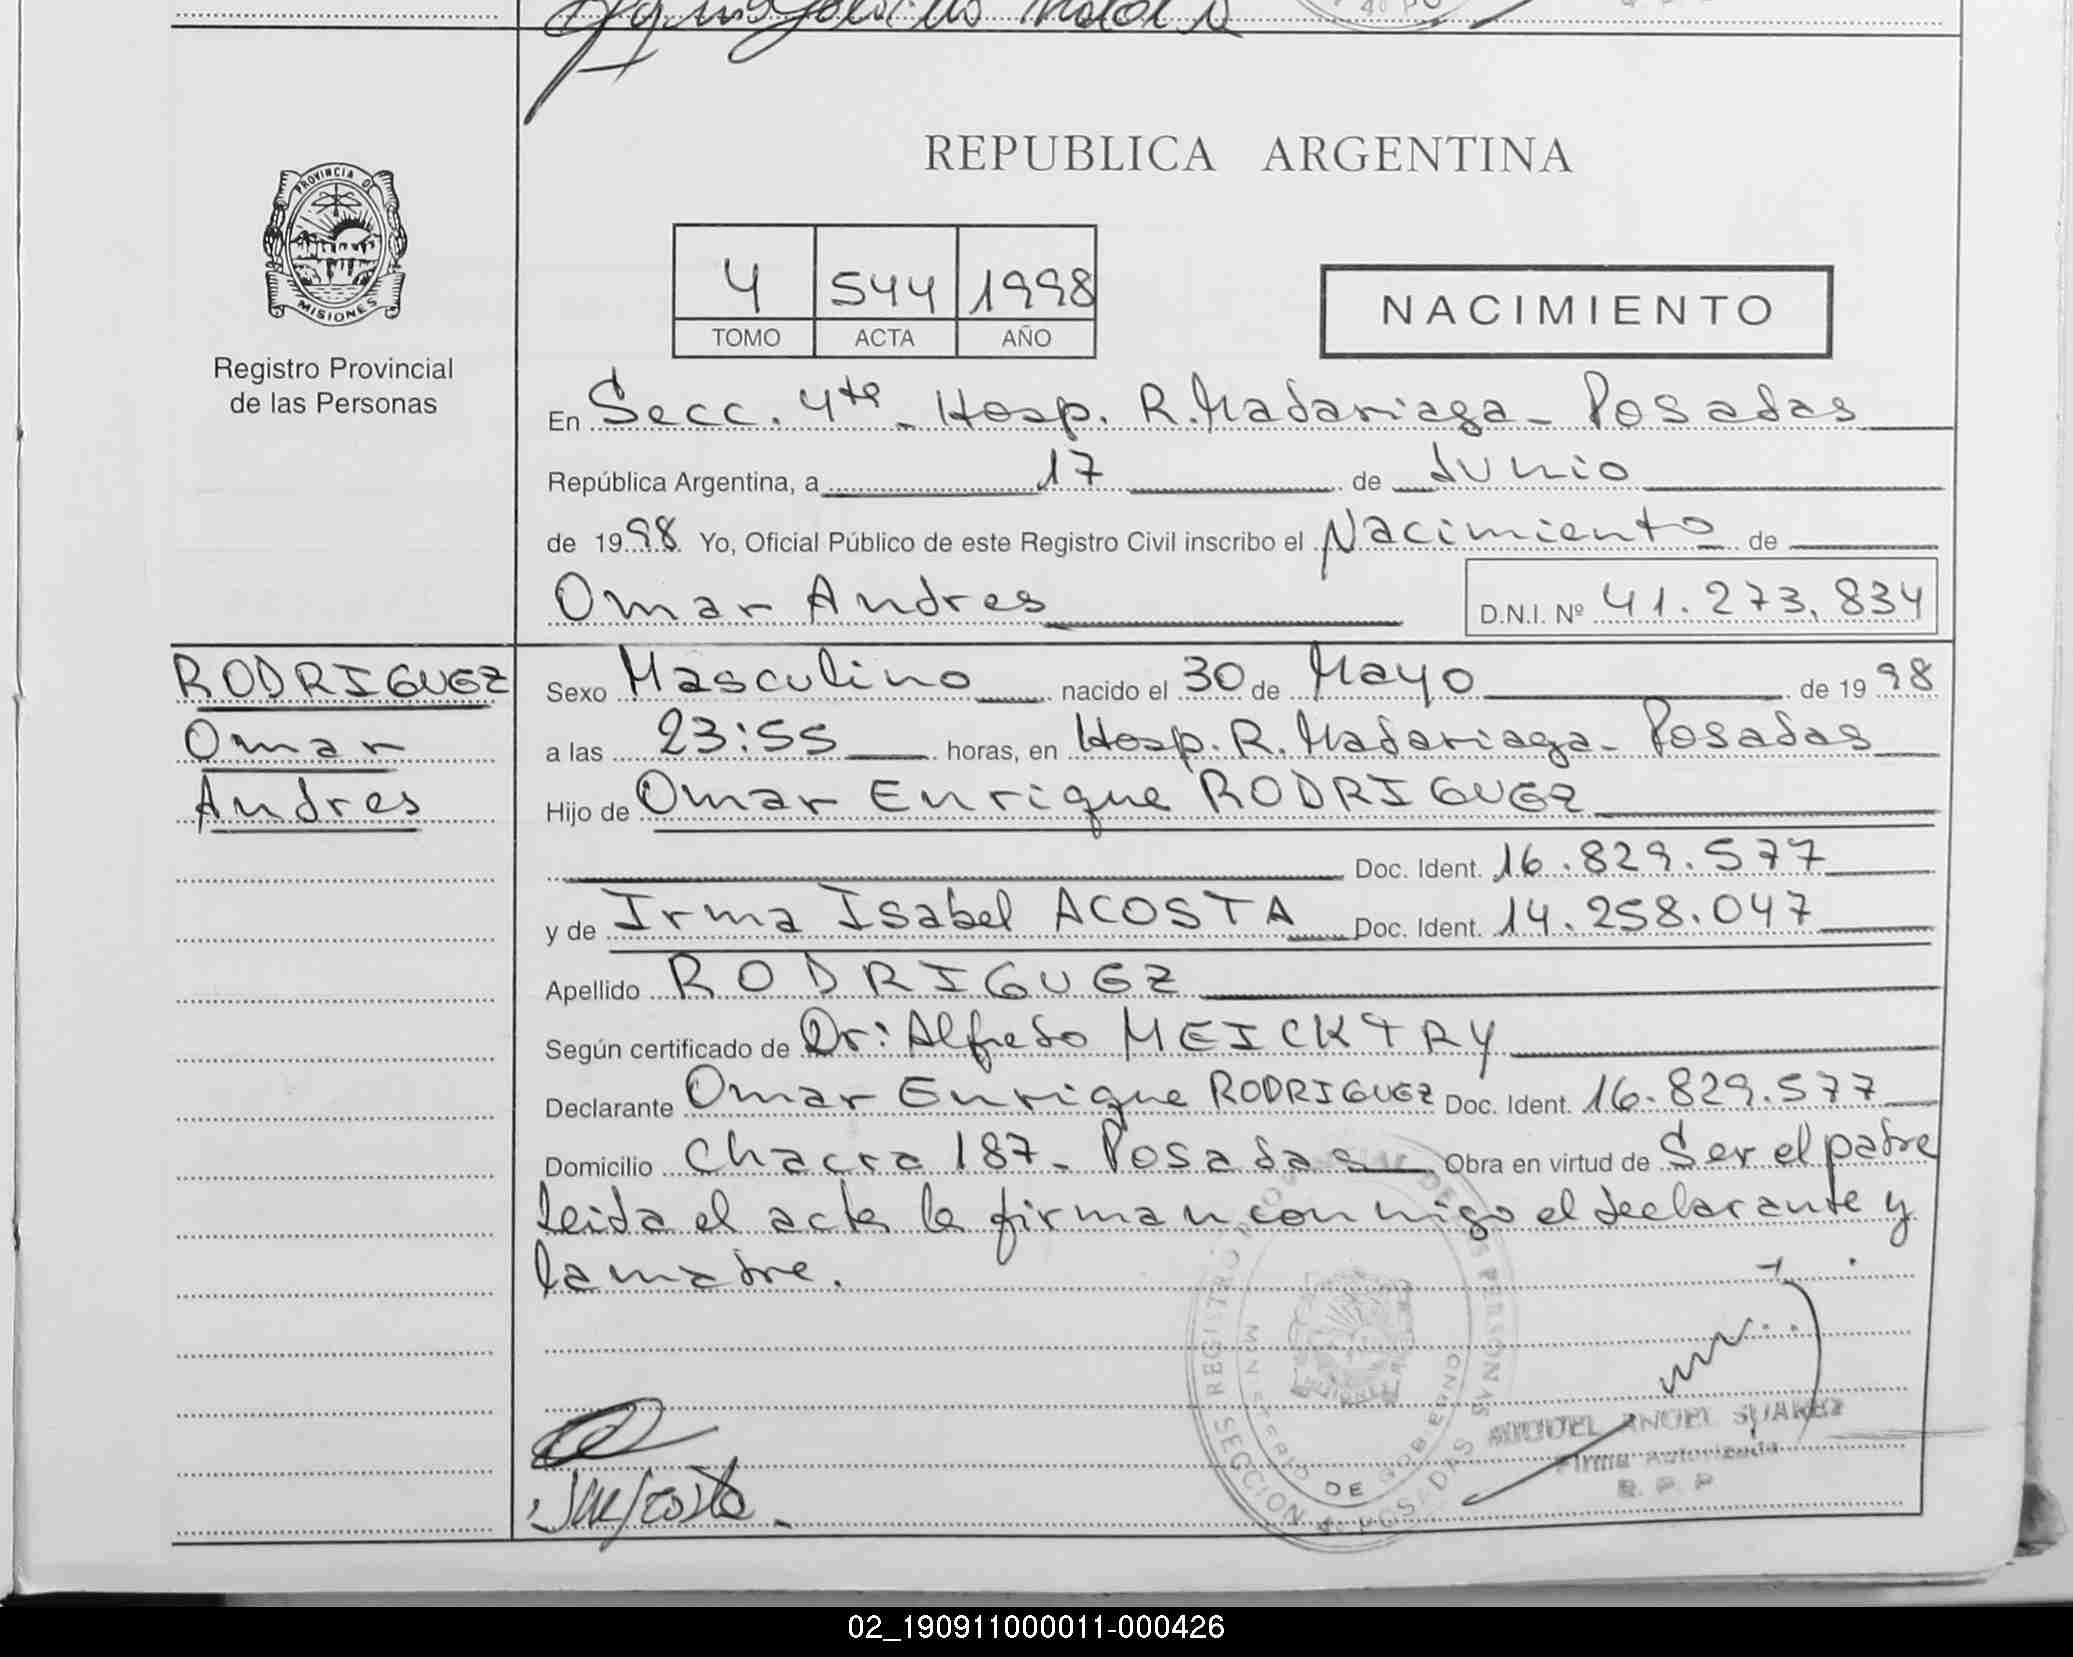 PROVINCIA DE
MISIONES
Registro Provincial
de las Personas
REPUBLICA ARGENTINA
4 544 1998
TOMO ACTA AÑO
NACIMIENTO
En Secc. 4ta - Hosp. R. Madariaga - Posadas
República Argentina, a 17 de Junio
de 1998 Yo, Oficial Público de este Registro Civil inscribo el Nacimiento de
Omar Andres D.N.I. Nº 41.273.834
RODRIGUEZ
Omar
Andres
Sexo Masculino nacido el 30 de Mayo de 1998
a las 23:55 horas, en Hosp. R. Madariaga - Posadas
Hijo de Omar Enrique RODRIGUEZ
Doc. Ident. 16.829.577
y de Irma Isabel ACOSTA Doc. Ident. 14.258.047
Apellido RODRIGUEZ
Según certificado de Dr: Alfredo
Declarante Omar Enrique RODRIGUEZ Doc. Ident. 16.829.577
Domicilio Chacra 187 - Posadas Obra en virtud de Ser el padre
leida el acta la firman conmigo el declarante y
la madre.
MINISTERIO DE GOBIERNO
SECCION 4a POSADAS
ANGEL SUAREZ
Firma Autorizada
R. P. P
02_190911000011-000426